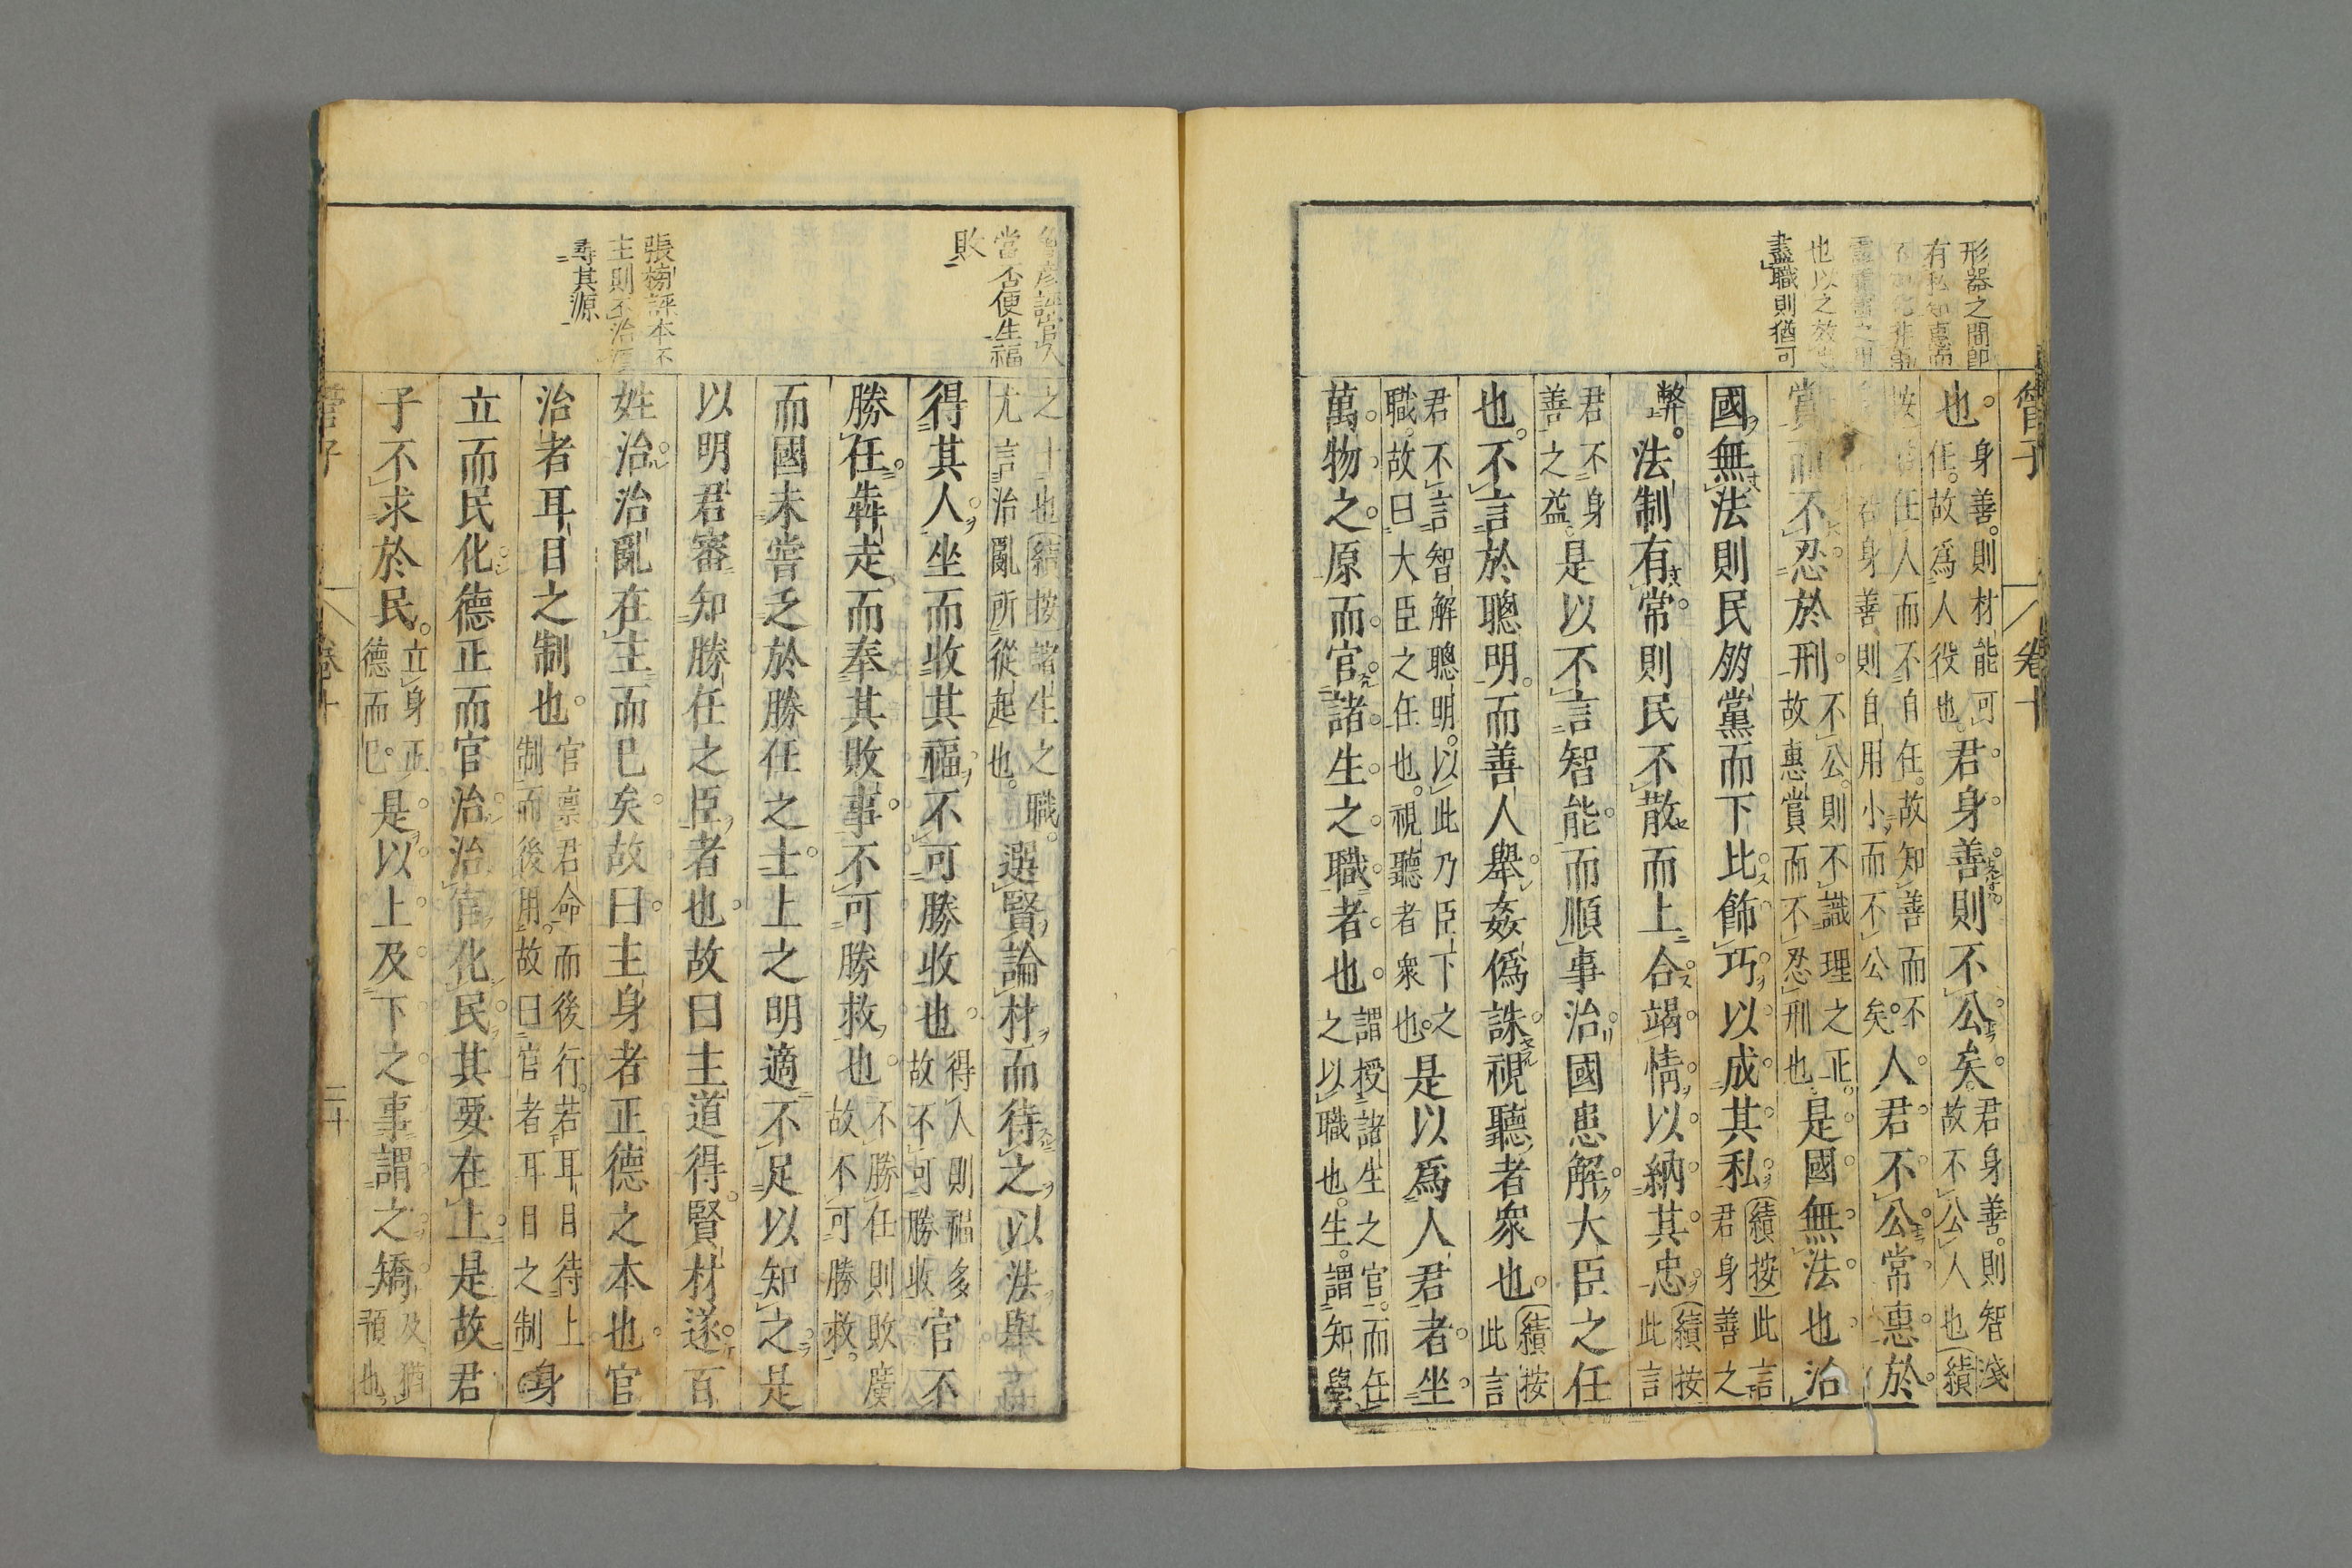 管子
卷十
形器之間即
有私知惠當
也以之放
盡職則猶可
也身善則材能可任故爲人役也君身善則不公矣君身善則智淺故不公人也績
按任人而不自任故知善而不君身善則自用小而不公矣人君不公常惠於
賞而不忍於刑不公則不識理之正故惠賞而不忍刑也是國無法也治
國無法則民朋黨而下比飾巧以成其私績按此言君身善之
弊法制有常則民不散而上合竭情以納其忠績按此言
君不身善之益是以不言智能而順事治國患解大臣之任
也不言於聰明而善人舉姦僞誅視聽者衆也績按此言
君不言智解聰明以此乃臣下之職故曰大臣之任也視聽者衆也是以爲人君者坐
萬物之原而官諸生之職者也謂授諸生之官而任之以職也生謂知學
當否便生福
敗
張榜評本不
主則不治
尋其源
之士也績按諸生之職尤言治亂所從起也選賢論材而待之以法舉
得其人坐而收其福不可勝收也得人則福多故不可勝收官不
勝任犇走而奉其敗事不可勝救也不勝任則敗廣故不可勝救
而國未嘗乏於勝任之士上之明適不足以知之是
以明君審知勝任之臣者也故曰主道得賢材遂百
姓治治亂在主而已矣故曰主身者正德之本也官
治者耳目之制也官禀君命而後行若耳目待上制而後用故曰官者耳目之制身
立而民化德正而官治治官化民其要在上是故君
子不求於民立身正德而已是以上及下之事謂之矯及猶預也
管子
卷十
二十